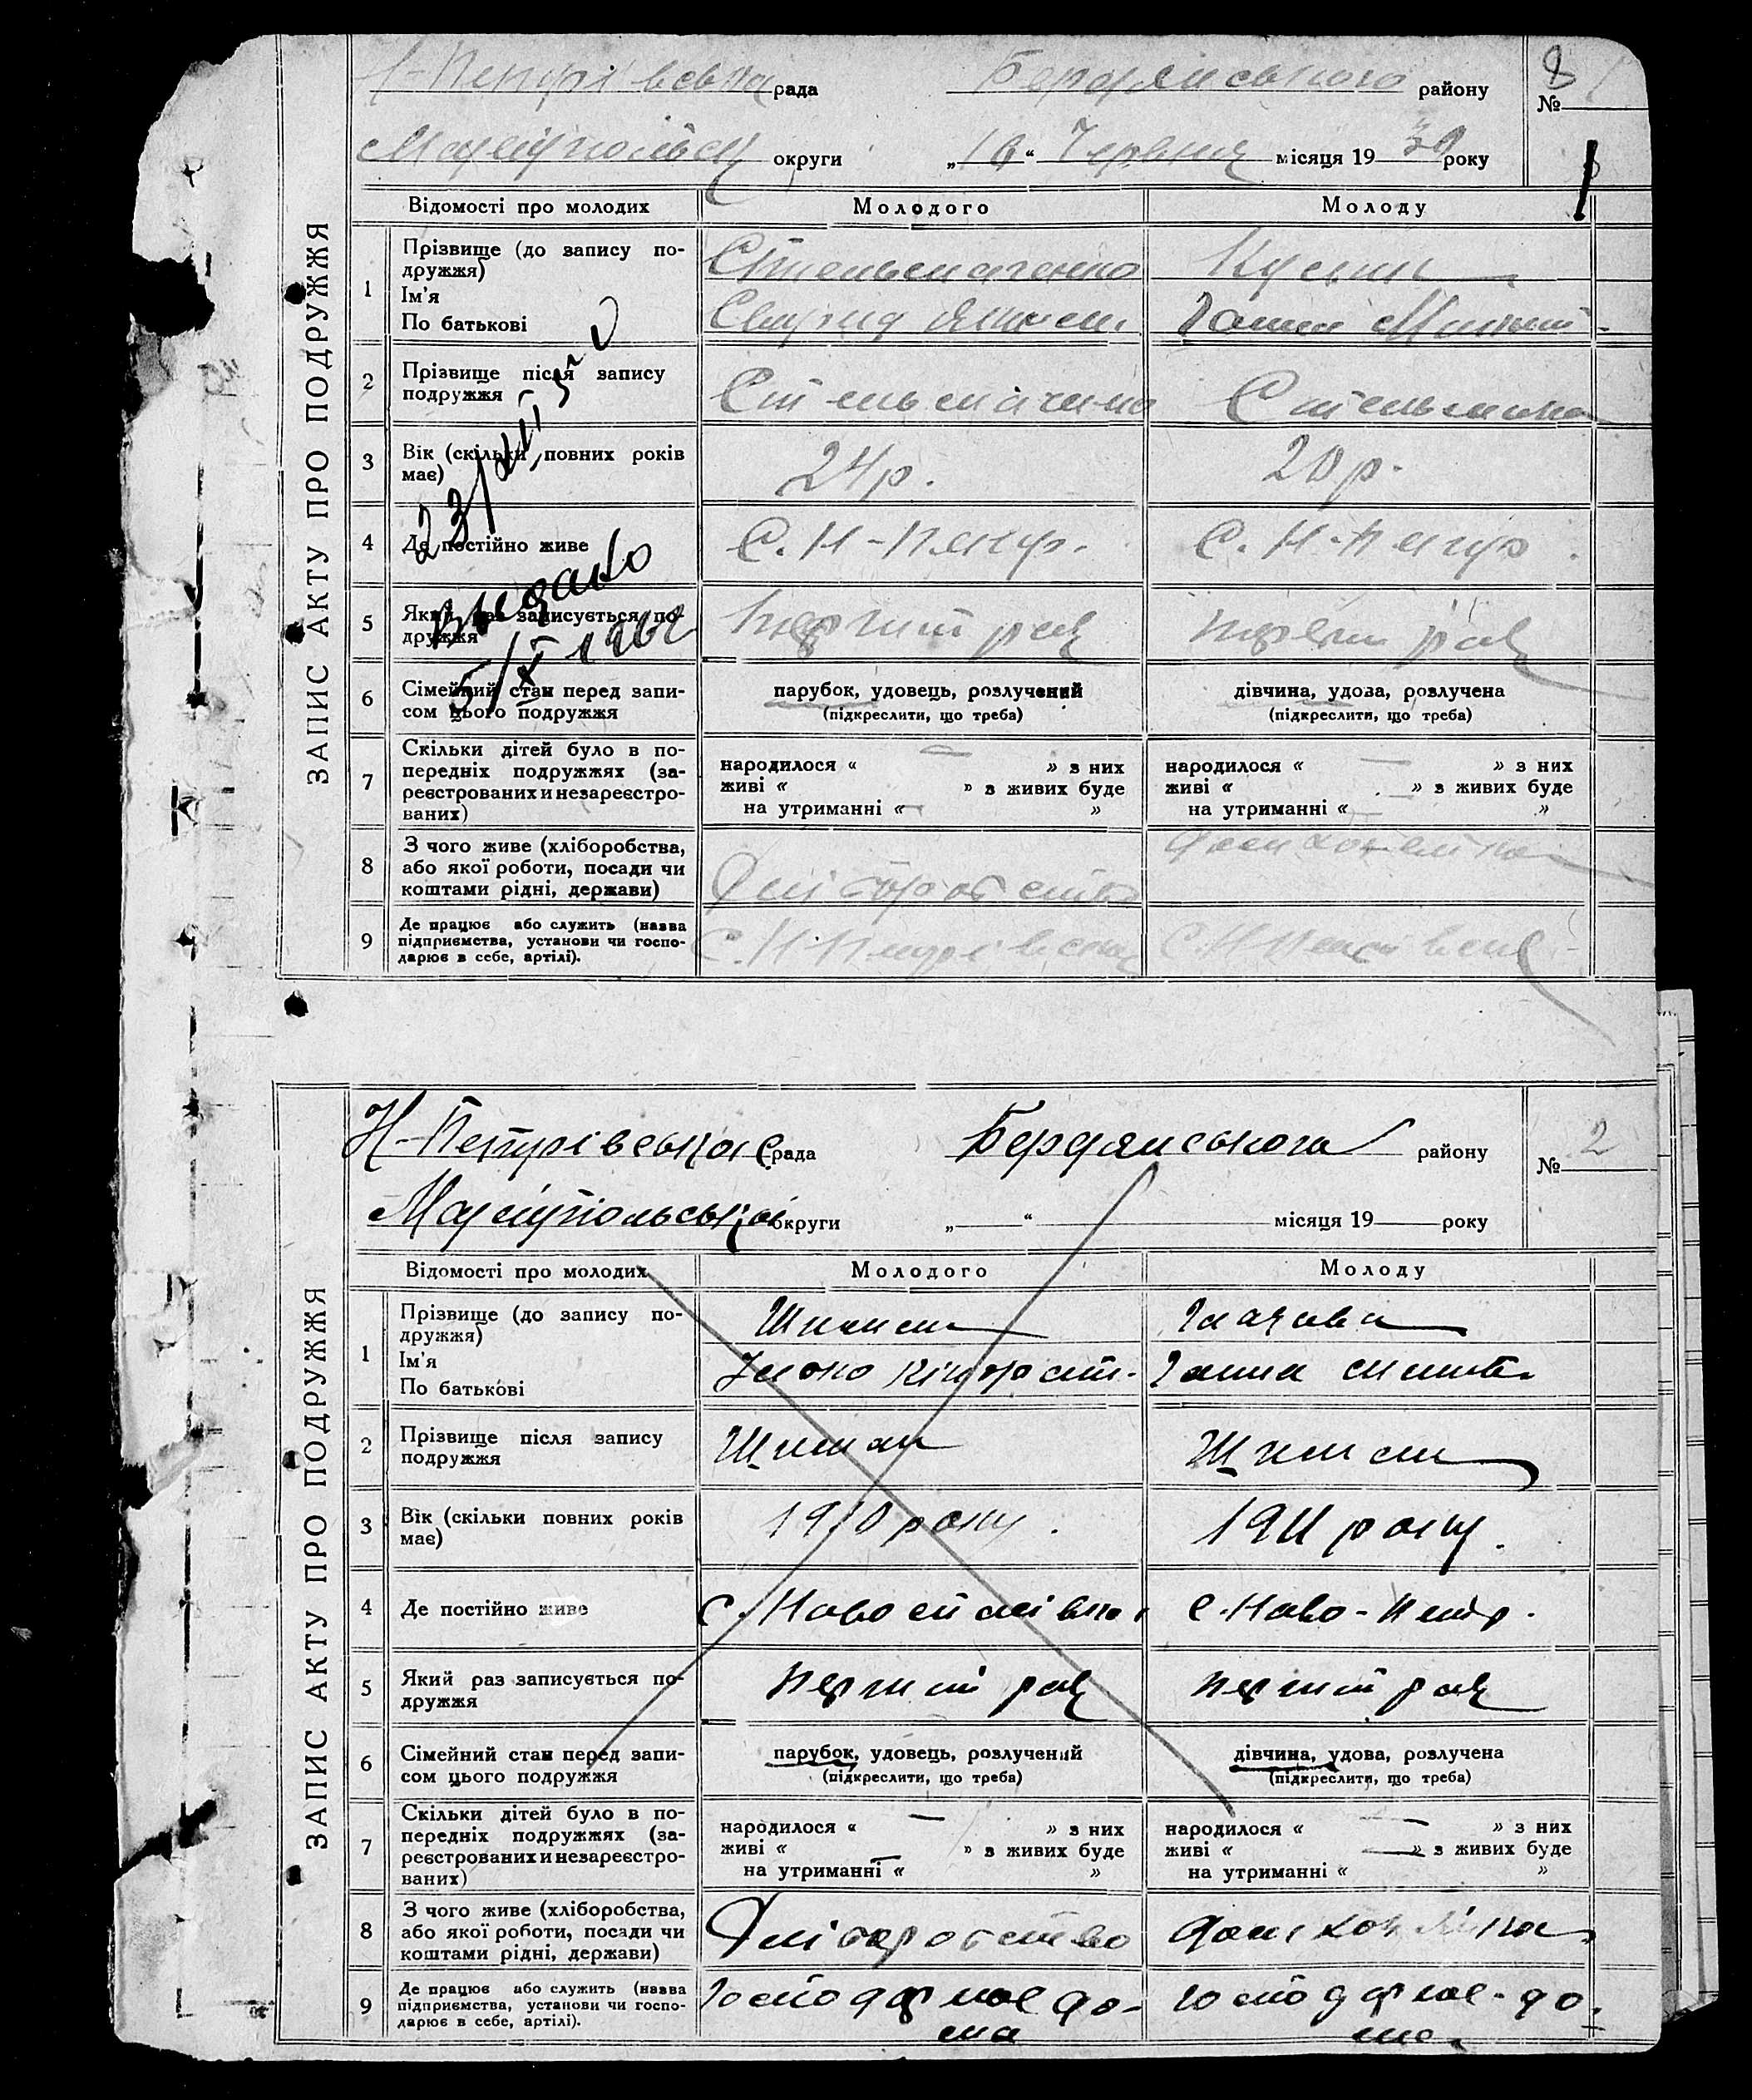 Н-Петрівська рада Бердянського району № 8
Маріупольськ округи „16“ Червня місяця 1930 року
ЗАПИС АКТУ ПРО ПОДРУЖЖЯ
Відомості про молодих Молодого Молоду
1 Прізвище (до запису по-
дружжя)
Ім'я
По батькові
2 Прізвище після запису
подружжя
3 Вік (скільки повних років
має) 24 р. 20 р.
4 Де постійно живе С. Н-Петр. С. Н-Петр.
5 Який раз записується по-
дружжя перший раз перший раз
6 Сімейний стан перед запи-
сом цього подружжя
парубок, удовець, розлучений
(підкреслити, що треба)
дівчина, удова, розлучена
(підкреслити, що треба)
7 Скільки дітей було в по-
передніх подружжях (за-
реєстрованих и незареєстро-
ваних)
народилося « — » з них
живі « » з живих буде
на утриманні « — »
народилося « — » з них
живі « — » з живих буде
на утриманні « — »
8 З чого живе (хліборобства,
або якої роботи, посади чи
коштами рідні, держави) Хліборобство домохазяйка
9 Де працює або служить (назва
підприємства, установи чи госпо-
дарює в себе, артілі). С. Н-Петрівська
Выдано
5/X 1962
Н-Петрівська с рада Бердянського району № 2
Маріупольської округи „ “ місяця 19 року
ЗАПИС АКТУ ПРО ПОДРУЖЖЯ
Відомості про молодих Молодого Молоду
1 Прізвище (до запису по-
дружжя)
Ім'я
По батькові
Шиман
Ганна
2 Прізвище після запису
подружжя Шиман Шиман
3 Вік (скільки повних років
має) 1910 року. 1911 року.
4 Де постійно живе с. с. Ново-Петр.
5 Який раз записується по-
дружжя перший раз перший раз
6 Сімейний стан перед запи-
сом цього подружжя
парубок, удовець, розлучений
(підкреслити, що треба)
дівчина, удова, розлучена
(підкреслити, що треба)
7 Скільки дітей було в по-
передніх подружжях (за-
реєстрованих и незареєстро-
ваних)
народилося « — » з них
живі « » з живих буде
на утриманні « — »
народилося « — » з них
живі « — » з живих буде
на утриманні « »
8 З чого живе (хліборобства,
або якої роботи, посади чи
коштами рідні, держави) Хліборобство домохазяйка
9 Де працює або служить (назва
підприємства, установи чи госпо-
дарює в себе, артілі).
господарює до-
ма
господарює-до-
ма.